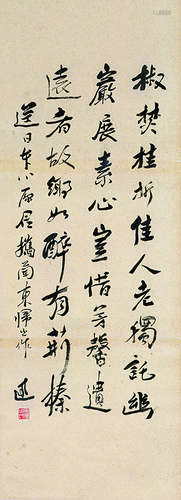 椒焚桂折佳人老獨託幽
巖展素心豈惜芳馨遺
遠者故鄉如醉有荊榛
送日本小原君攜蘭東歸之作
迅